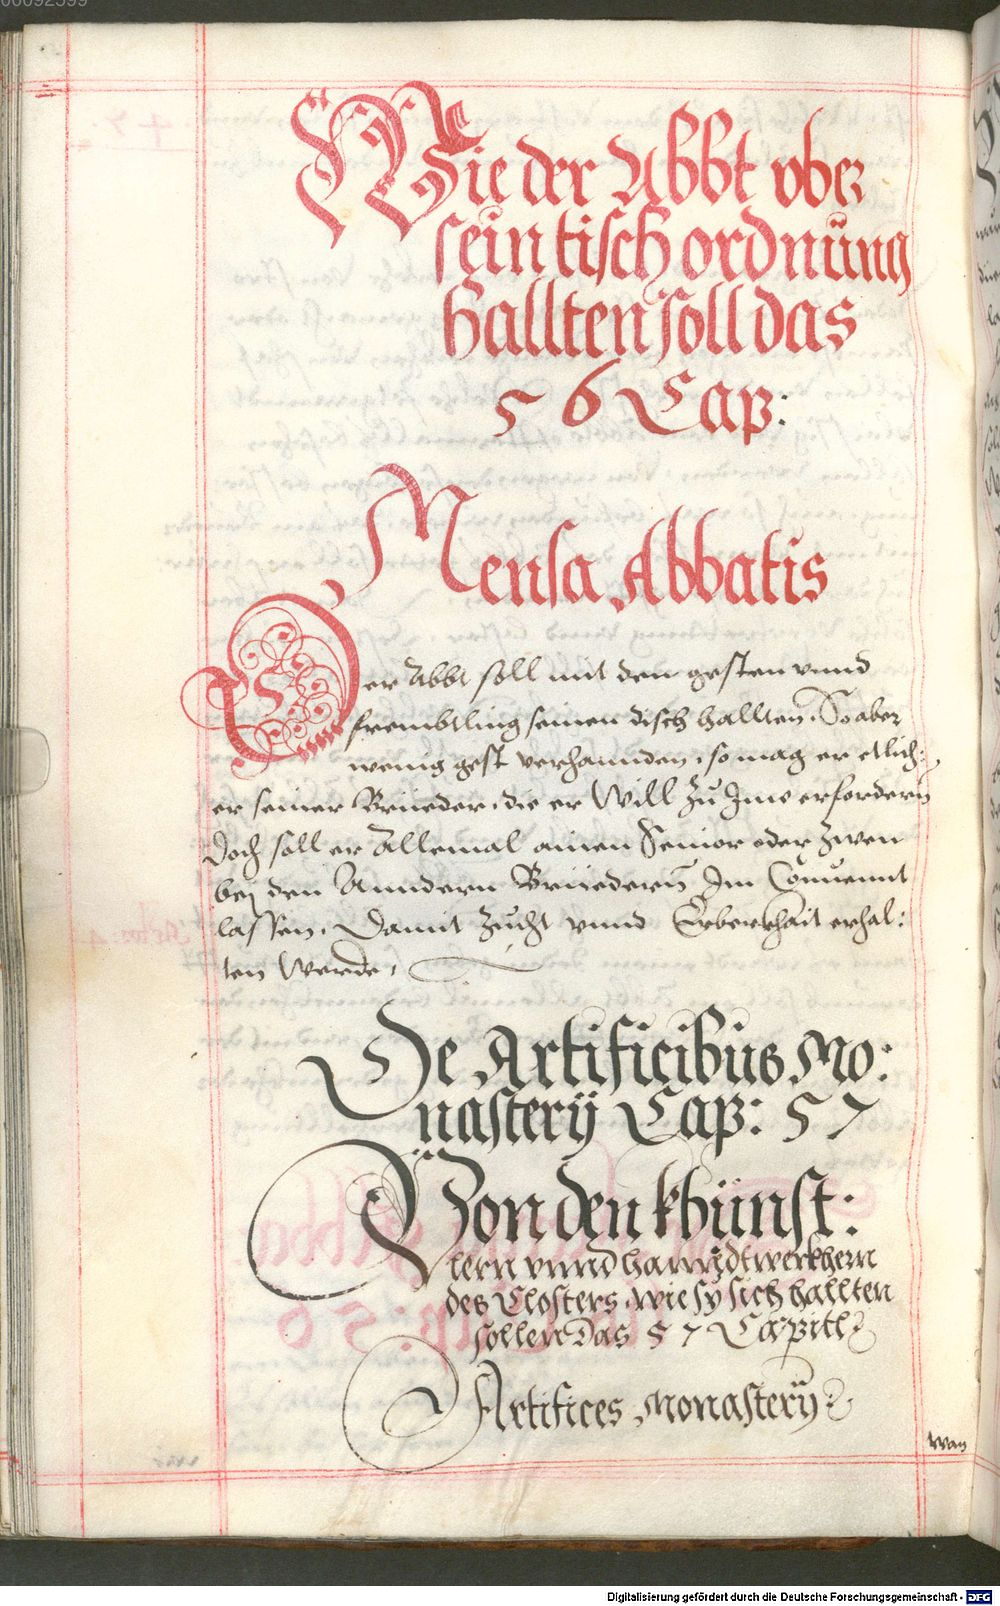 00092599
Wie der Abbt vber
sein tisch ordnüng
hallten soll das
56 Cap:
Mensa Abbatis
Der Abbt soll mit den gesten vnnd
frembtling seinen disch hallten. So aber
wenig gest verhannden, so mag er etlich:
er seiner Brüeder, die er Will Zu Jme erfordern
Doch soll er Allemal ainen Senior oder Zwen
bej den Anndern Brüedern Jm Conuennt
lassen. Damit Zucht vnnd Erberkhait erhal:
ten Werde,
De Artificibus Mo:
nasterÿ Cap: 57
Von den khünst:
lern vnnd hanndtwerkhern
des Closters wie sy sich hallten
sollen Das 57 Capitl
Artifices Monasterÿ
wan
Digitalisierung gefördert durch die Deutsche Forschungsgemeinschaft - DFG